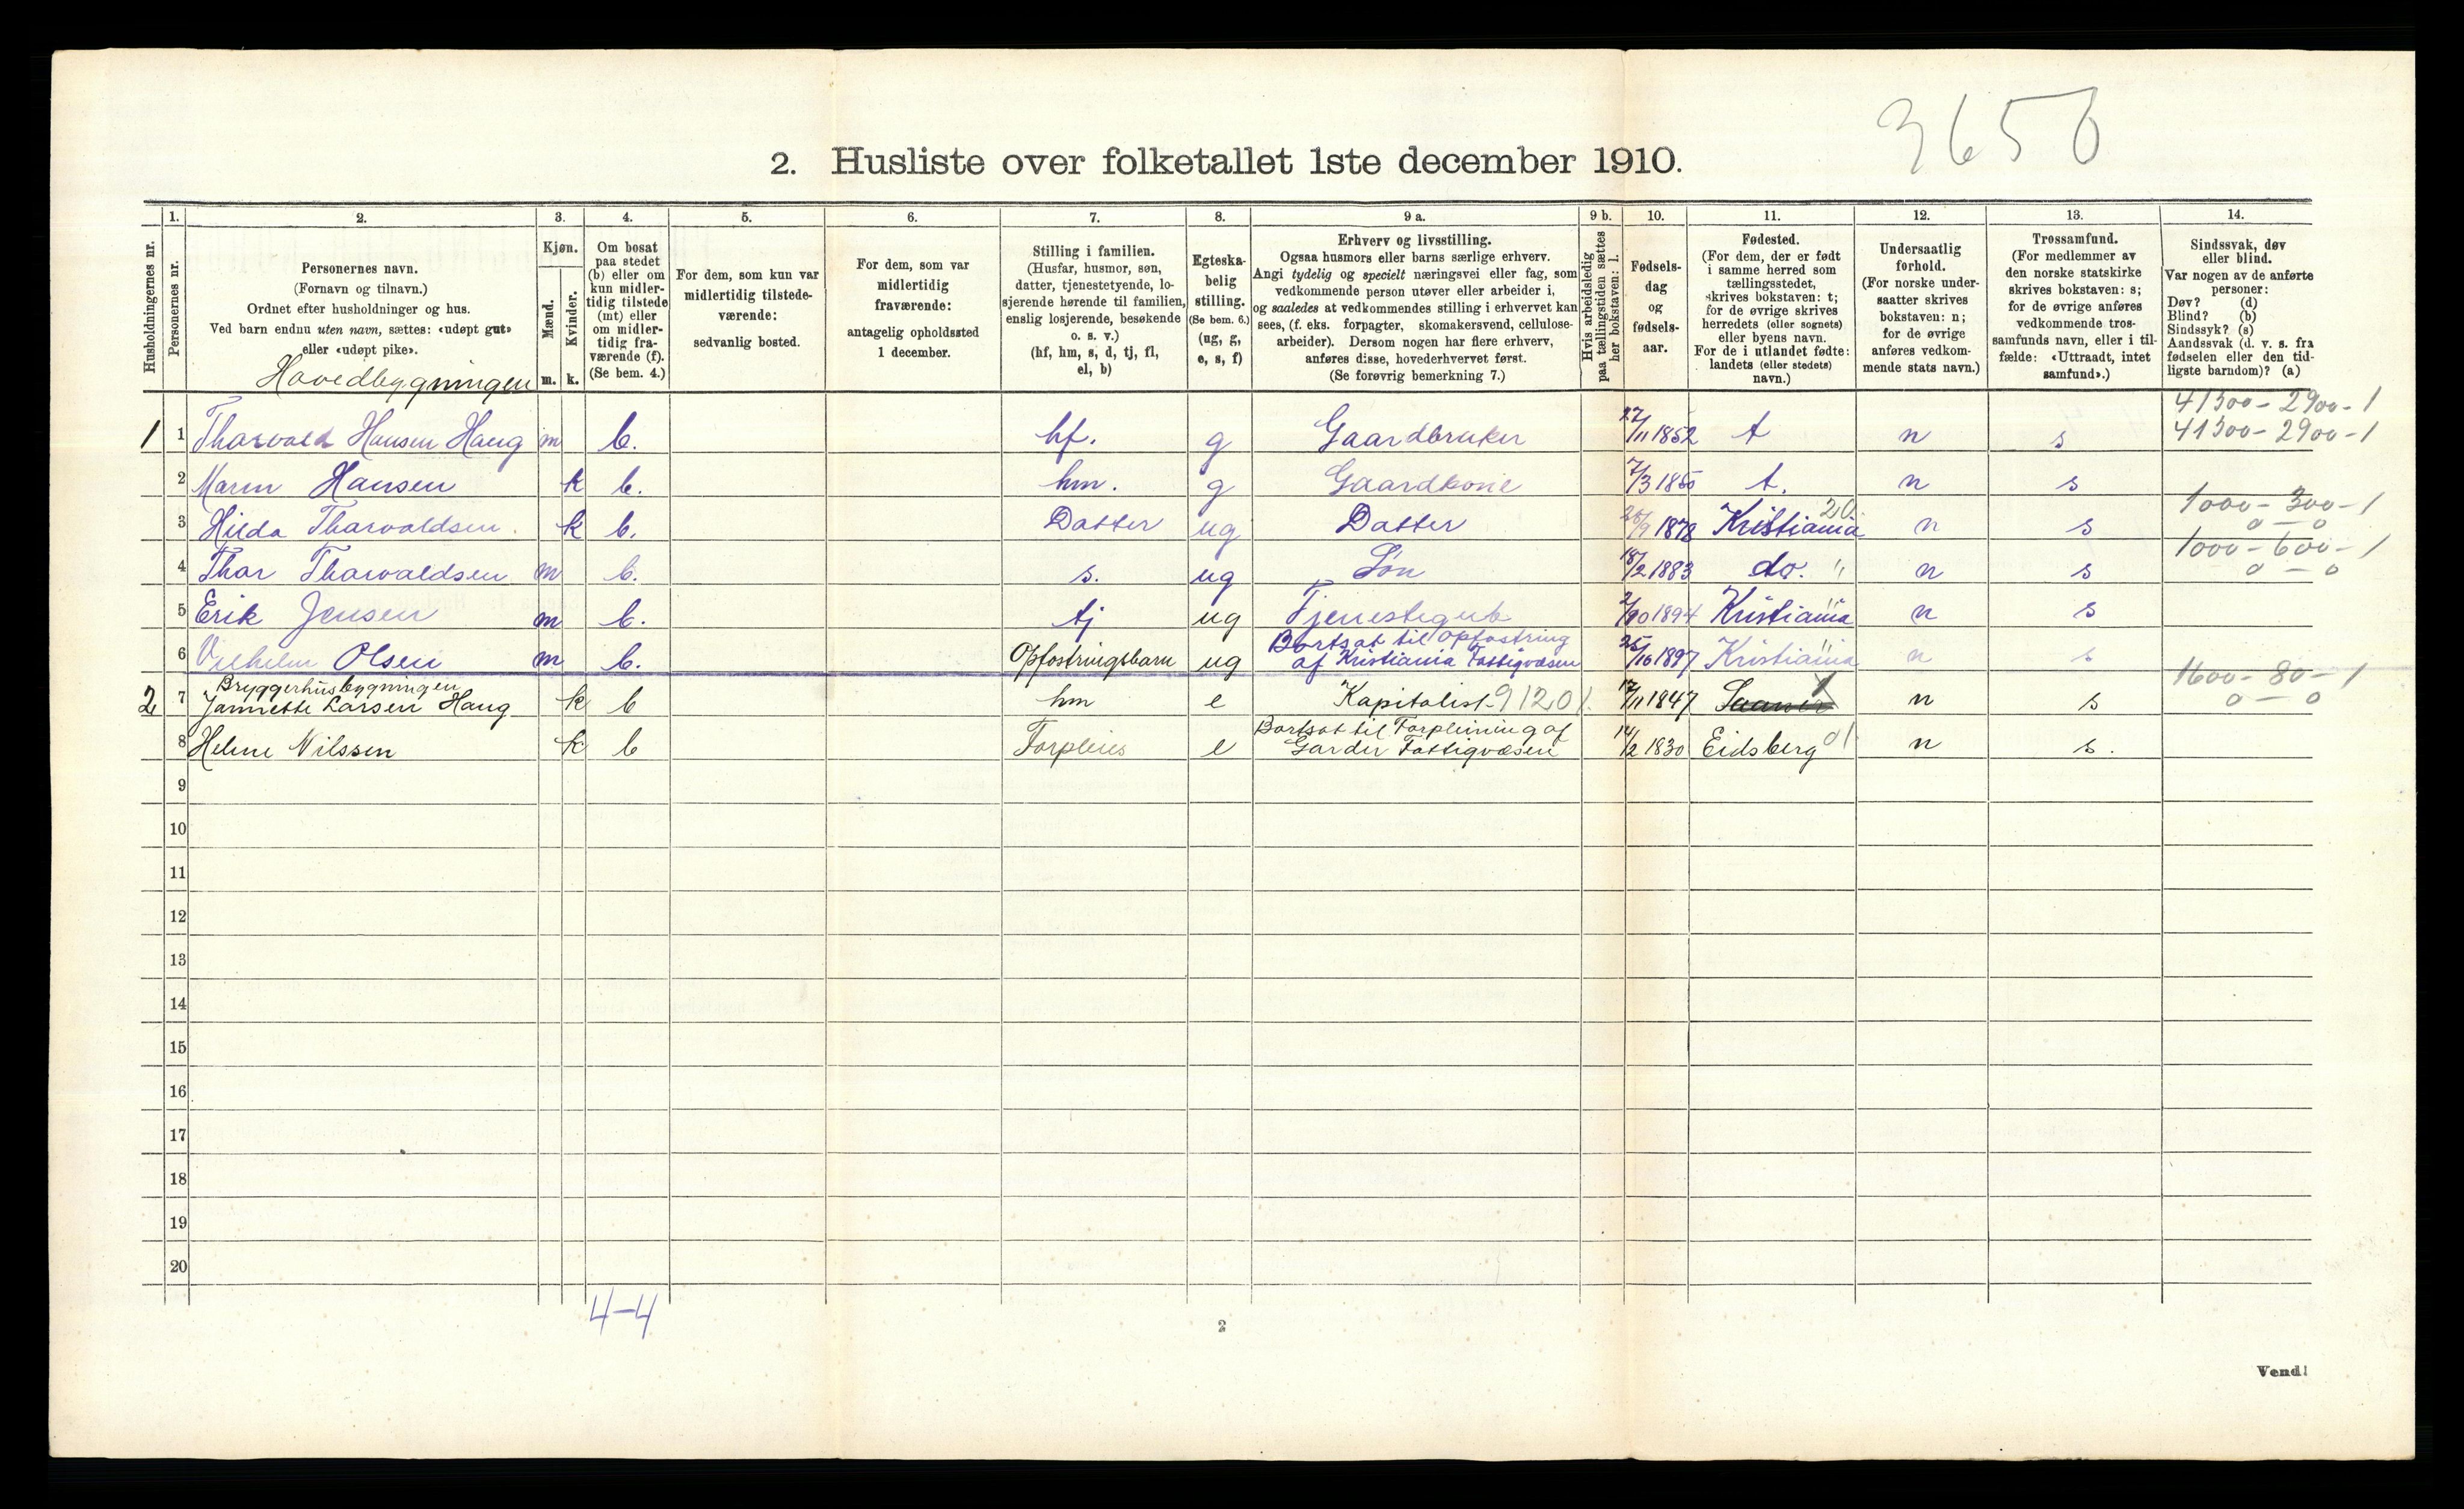 3656
2. Husliste over folketallet 1ste december 1910.
Husholdningernes nr.
1.
Personernes nr.
2.
Personernes navn.
(Fornavn og tilnavn.)
Ordnet efter husholdninger og hus.
Ved barn endnu uten navn, sættes: «udøpt gut»
eller «udøpt pike».
Hovedbygningen
3.
Kjøn.
Mænd.
Kvinder.
m. k.
4.
Om bosat
paa stedet
(b) eller om
kun midler-
tidig tilstede
(mt) eller
om midler-
tidig fra-
værende (f).
(Se bem. 4.)
5.
For dem, som kun var
midlertidig tilstede-
værende:
sedvanlig bosted.
6.
For dem, som var
midlertidig
fraværende:
antagelig opholdssted
1 december.
7.
Stilling i familien.
(Husfar, husmor, søn,
datter, tjenestetyende, lo-
sjerende hørende til familien,
enslig losjerende, besøkende
o. s. v.)
(hf, hm, s, d, tj, fl,
el, b)
8.
Egteska-
belig
stilling.
(Se bem. 6.)
(ug, g,
e, s, f)
9 a.
Erhverv og livsstilling.
Ogsaa husmors eller barns særlige erhverv.
Angi tydelig og specielt næringsvei eller fag, som
vedkommende person utøver eller arbeider i,
og saaledes at vedkommendes stilling i erhvervet kan
sees, (f. eks. forpagter, skomakersvend, cellulose-
arbeider). Dersom nogen har flere erhverv,
anføres disse, hovederhvervet først.
(Se forøvrig bemerkning 7.)
9 b.
Hvis arbeidsledig
paa tællingstiden sættes
her bokstaven: l.
10.
Fødsels-
dag
og
fødsels-
aar.
11.
Fødested.
(For dem, der er født
i samme herred som
tællingsstedet,
skrives bokstaven: t;
for de øvrige skrives
herredets (eller sognets)
eller byens navn.
For de i utlandet fødte:
landets (eller stedets)
navn.)
12.
Undersaatlig
forhold.
(For norske under-
saatter skrives
bokstaven: n;
for de øvrige
anføres vedkom-
mende stats navn.)
13.
Trossamfund.
(For medlemmer av
den norske statskirke
skrives bokstaven: s;
for de øvrige anføres
vedkommende tros-
samfunds navn, eller i til-
fælde: «Uttraadt, intet
samfund».)
14.
Sindssvak, døv
eller blind.
Var nogen av de anførte
personer:
Døv? (d)
Blind? (b)
Sindssyk? (s)
Aandssvak (d. v. s. fra
fødselen eller den tid-
ligste barndom)? (a)
41300 - 2900 - 1
1 1 Tharvald Hansen Haug m b. hf. g Gaardbruker 27/11 1852 t n s 41300 - 2900 - 1
2 Maren Hansen k b. hm. g Gaardkone 7/3 1855 t. n s
20 1000 - 300 - 1
3 Hilda Tharvaldsen. k b. Datter ug Datter 1878 Kristiania n s 0 — 0
1000 - 600 - 1
4 Thar Tharvaldsen m b. s. ug Søn 18/2 1883 do. " n s 0 — 0
5 Erik Jensen m b. tj ug Tjenestegut 1894 Kristiania " n s
Bortsat til opfostring
6 Vilhelm Olsen m b. Opfostringsbarn ug af Kristiania Fattigvæsen 25/10 1897 Kristiania " n s
Bryggerhusbygningen
1600 - 80 - 1
2 7 Jannette Larsen Haug k b hm e Kapitalist 9120 17/11 1847 n s 0 — 0
Bortsat til Forpleining af
8 Helene Nilssen k b Forpleies e Garder Fattigvæsen 14/2 1830 Eidsberg 01 n s.
9
10
11
12
13
14
15
16
17
18
19
20
4-4
2
Vend!